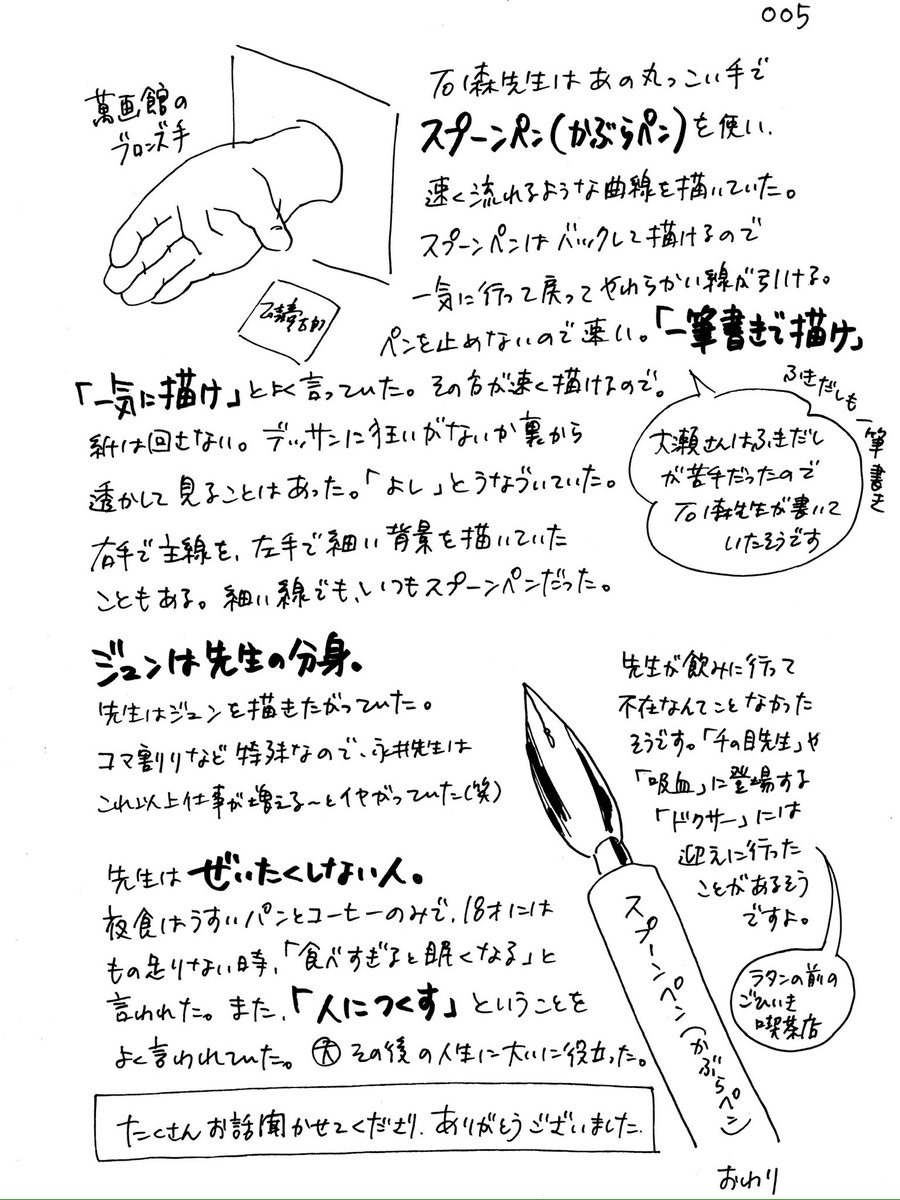 005
萬画館の
ブロンズ手
石ノ森先生はあの丸っこい手で
スプーンペン(かぶらペン)を使い、
速く流れるような曲線を描いていた。
スプーンペンはバックして描けるので
一気に行って戻ってやわらかい線が引ける。
ペンを止めないので速い。「一筆書きで描け」
「一気に描け」とよく言っていた。その方が速く描けるので。
紙は回さない。デッサンに狂いがないか裏から
透かして見ることはあった。「よし」とうなづいていた。
右手で主線を、左手で細い背景を描いていた
こともある。細い線でも、いつもスプーンペンだった。
ふきだしも
一筆書き
大瀬さんはふきだし
が苦手だったので
石ノ森先生が書いて
いたそうです
ジュンは先生の分身。
先生はジュンを描きたがっていた。
コマ割りなど特殊なので、永井先生は
これ以上仕事が増える〜とイヤがっていた(笑)
先生はぜいたくしない人。
夜食はうすいパンとコーヒーのみで、18才には
もの足りない時、「食べすぎると眠くなる」と
言われた。また、「人につくす」ということを
よく言われていた。大 その後の人生に大いに役立った。
先生が飲みに行って
不在なんてことなかった
そうです。「千の目先生」や
「吸血」に登場する
「ドクサー」には
迎えに行った
ことがあるそう
ですよ。
ラタンの前の
ごひいき
喫茶店
スプーンペン(かぶらペン)
たくさんお話聞かせてくださり、ありがとうございました。
おわり